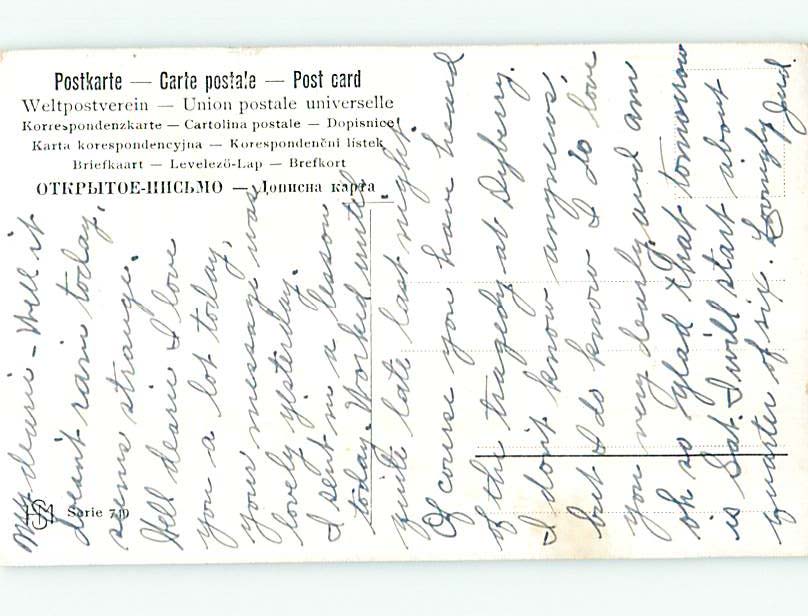 Postkarte — Carte postale — Post card
Weltpostverein — Union postale universelle
Korrespondenzkarte — Cartolina postale — Dopisnice
Karta korespondencyjna — Korespondenční lístek
Briefkaart — Levelező-Lap — Brefkort
ОТКРЫТОЕ-ПИСЬМО — Дописна карта
My dearie - Well it
doesn't rain today,
seems strange.
Well dearie I love
you a lot today,
your message was
lovely yesterday.
I sent in a lesson
today. Worked until
quite late last night.
Of course you have heard
of the tragedy at Dyberry.
I don't know any news,
but I do know I do love
you very dearly and am
oh so glad that tomorrow
is Sat. I will start about
quarter of six. Lovingly
Jud.
Serie 719